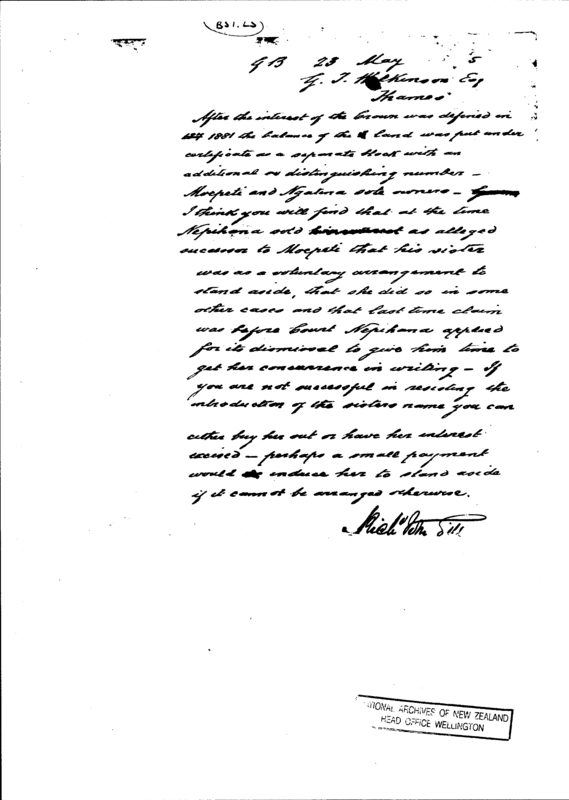 (BS1. LS)
GB 23 May 5
G. T. Wilkinson Esq
Thames
After the interest of the Crown was defined in
1881 the balance of the land was put under
certificate as a separate block with an
additional or distinguishing number –
Moepeti and Ngatina sole owners –
I think you will find that at the time
Nepihana sold as alleged
successor to Moepeti that his sister
was as a voluntary arrangement to
stand aside, that she did so in some
other cases and that last time claim
was before Court Nepihana applied
for its dismissal to give him time to
get her concurrence in writing – If
you are not successful in resisting the
introduction of the sisters name you can
either buy her out or have her interest
excised – perhaps a small payment
would induce her to stand aside
if it cannot be arranged otherwise.
TIONAL ARCHIVES OF NEW ZEALAND
HEAD OFFICE WELLINGTON